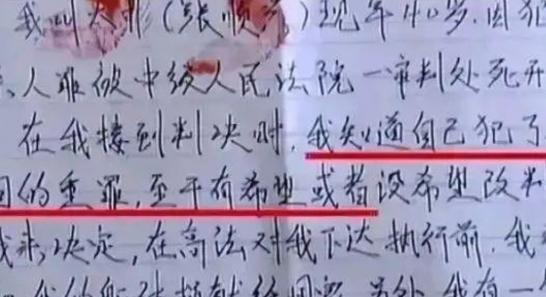 我叫大非(张顺 现年40岁.因犯
人罪被中级人民法院一审判处死
在我接到判决时,我知道自己犯了
的重罪,至于有希望或者没希望改判
来决定,在高法对我下达执行前,我
我有一